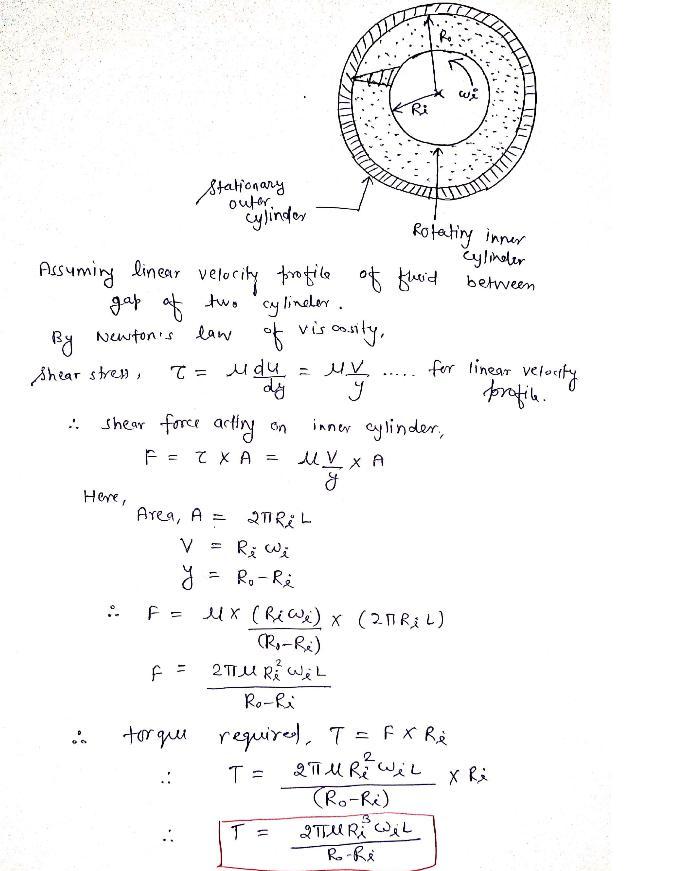 R₀
ωi
Ri
Stationary
outer
cylinder
Rotating inner
cylinder
Assuming linear velocity profile of fluid between
gap of two cylinder.
By Newton's law of viscosity,
Shear stress, τ = μ du/dy = μ V/y ..... for linear velocity
profile.
∴ shear force acting on inner cylinder,
F = τ × A = μ V/y × A
Here,
Area, A = 2πRiL
V = Ri ωi
y = R₀-Ri
∴ F = μ × (Riωi)/(R₀-Ri) × (2πRiL)
F = 2πμRi²ωiL/R₀-Ri
∴ torque required, T = F × Ri
∴ T = 2πμRi²ωiL/(R₀-Ri) × Ri
∴ T = 2πμRi³ωiL/R₀-Ri